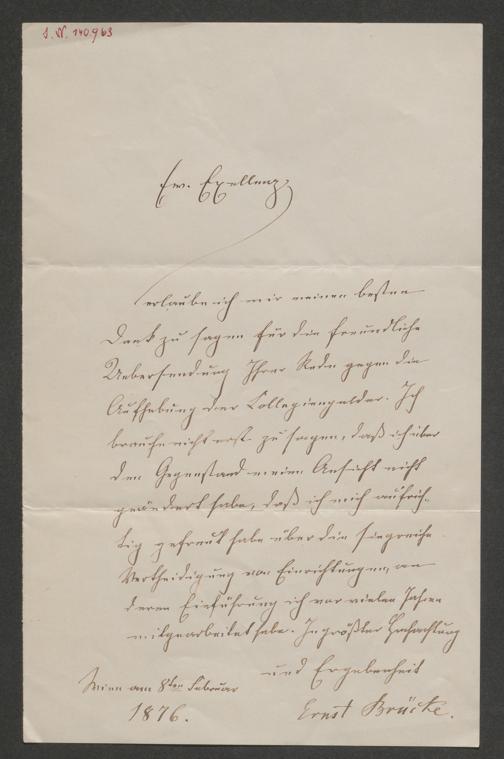 J. N. 140.963
Ew. Exellenz,
erlaube ich mir meinen besten
Dank zu sagen für die freundliche
Uebersendung Ihrer Rede gegen die
Aufhebung der Collegiengelder. Ich
brauche nicht erst zu sagen, daß ich über
den Gegenstand meine Ansicht nicht
geändert habe, daß ich mich aufrich-
tig gefreut habe über die siegreiche
Vertheidigung von Einrichtungen, an
deren Einführung ich vor vielen Jahren
mitgearbeitet habe. In größter Hochachtung
und Ergebenheit
Wien am 8ten Februar
1876.
Ernst Brücke.